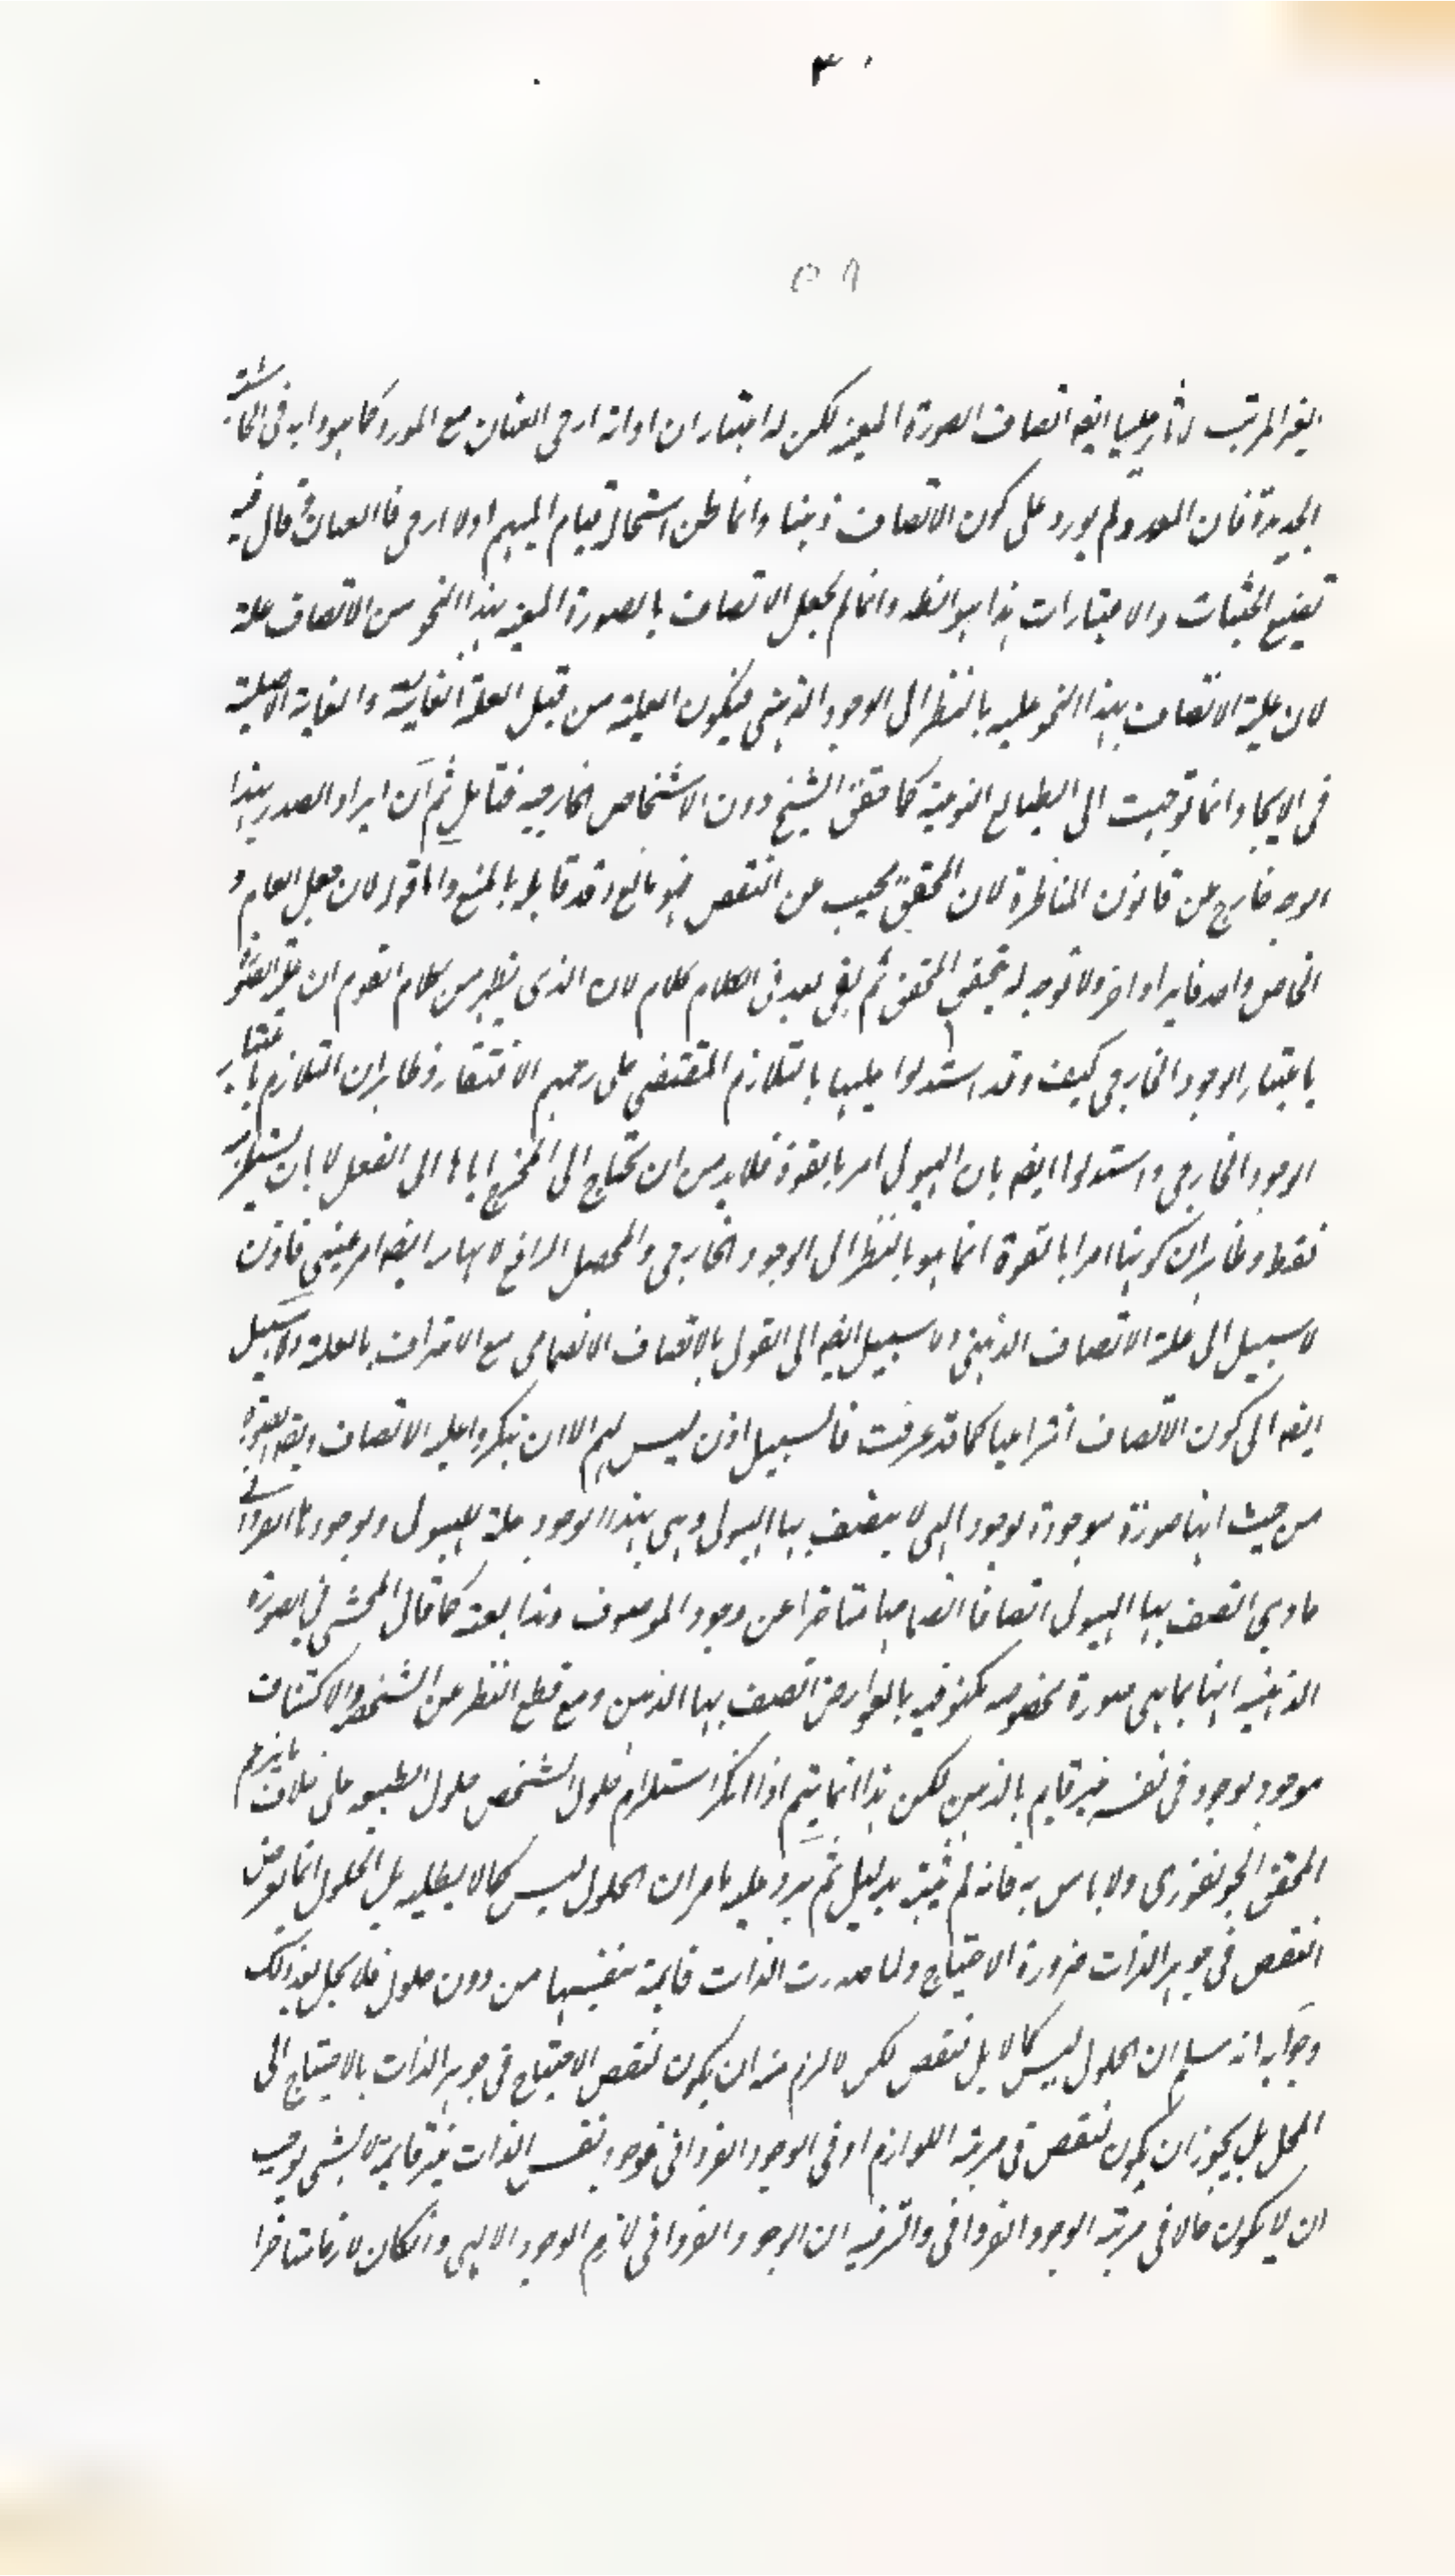 ٣٠
٥٩
المرتب اثار عليها ايضه اتصاف الصورة المعينه لكن له اعتبار ان اوانه ارخى العنان مع المورد كما هو دابه فى الحاشية
الجديدة فان المورد لم يورد على كون الاتصاف ذهنيا وانما ظن استحالة قيام المبهم اولا ارخى فا العنان قال فيه
تضيع الحيثيات والاعتبارات هذا هو الظه وانما لم يجعل الاتصاف بالصورة المعينه بهذا النحو من الاتصاف علة
لان علية الاتصاف بهذا النحو عليه بالنظر الى الوجود الذهنى فيكون العلية من قبل العلة الغائية والغاية الاصلية
فى الايجاد انما توجهت الى الطبايع النوعية كما حقق الشيخ دون الاشخاص الخارجيه فتامل ثم ان ايراد الصدر بهذا
الوجه خارج عن قانون المناظرة لان المحقق مجيب عن النقض فهو مانع وقد قابله بالمنع واما قوله لان جعل العام و
الخاص واحد فايراد اخر ولا توجه له بتحقيق المحقق ثم بقى بعد فى الكلام كلام لان الذى يظهر من كلام القوم ان علية الصورة
باعتبار الوجود الخارجى كيف وقد استدلوا عليها بالتلازم المقتضى على زعمهم الافتقار وظاهر ان التلازم باعتبار
الوجود الخارجى واستدلوا ايضه بان الهيولى امر بالقوة فلا بد من ان تحتاج الى المخرج اياها الى الفعل لا بان يستلزمه
فقط وظاهر ان كونها امرا بالقوة انما هو بالنظر الى الوجود الخارجى والمحصل الرافع لابهامه ايضه امر عينى فاذن
لا سبيل الى علة الاتصاف الذهنى ولا سبيل ايضه الى القول بالاتصاف الانضمامى مع الاعتراف بالعلة ولا سبيل
ايضه الى كون الاتصاف انتزاعيا كما قد عرفت فالسبيل اذن ليس لهم الا ان ينكروا علية الاتصاف ويقه الصورة
من حيث انها صورة موجودة بوجود الهى لا يتصف بها الهيولى وهى بهذا الوجود علة للهيولى وبوجودها الفردانى
مادي اتصف بها الهيولى اتصافا انضماميا متاخرا عن وجود الموصوف وهذا بعينه كما قال المحشى فى الصورة
الذهنيه انها بما هى صورة مخصوصه مكنوفه بالعوارض اتصف بها الذهن ومع قطع النظر عن التشخص والاكتناف
موجود بوجود فى نفسه غير قايم بالذهن لكن هذا انما يتم اذا انكر استلزام حلول الشخص حلول الطبيعه على خلاف ما يزعم
المحقق الجونفورى ولا باس به فانه لم يثبت بدليل ثم يرد عليه ما مر ان الحلول ليس كمالا يطلبه بل الحلول انما يعرض
النقص فى جوهر الذات ضرورة الاحتياج ولما صدرت الذات قايمة بنفسها من دون حلول فلا يحل بعد ذلك
وجوابه انه مسلم ان الحلول ليس كمالا بل نقص لكن لا لزم منه ان يكون لنقص الاحتياج فى جوهر الذات بالاحتياج الى
المحل بل يجوز ان يكون لنقص فى مرتبه اللوازم او فى الوجود الفردانى فوجود نفس الذات غير قايمة لا بشى يوجب
ان لا يكون حالا فى مرتبة الوجود الفردانى والسر فيه ان الوجود الفردانى لازم الوجود الالهى وان كان لازما متاخرا